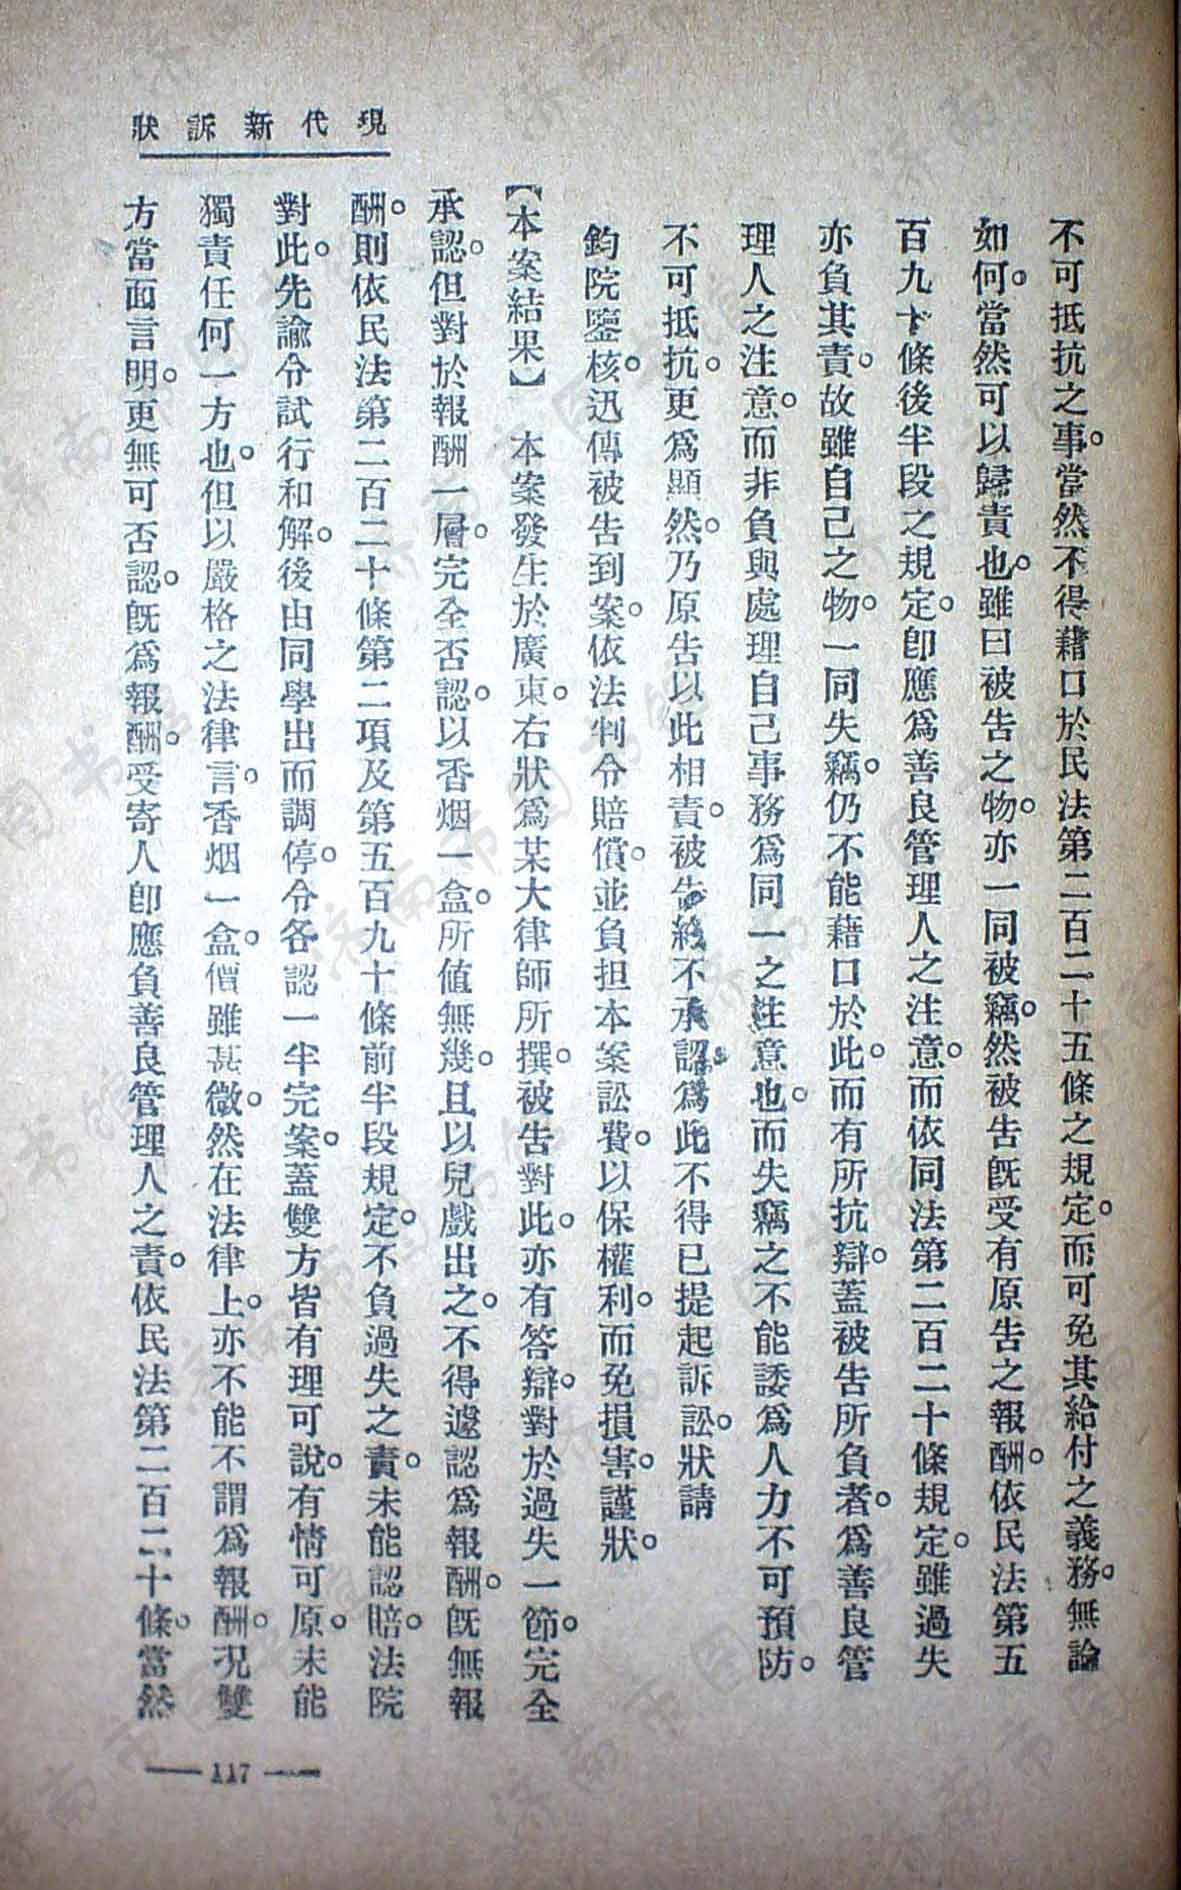 現代新訴狀
不可抵抗之事。當然不得藉口於民法第二百二十五條之規定。而可免其給付之義務。無論
如何。當然可以歸責也。雖曰被告之物。亦一同被竊。然被告既受有原告之報酬。依民法第五
百九十條後半段之規定。卽應爲善良管理人之注意。而依同法第二百二十條規定。雖過失
亦負其責。故雖自己之物。一同失竊。仍不能藉口於此。而有所抗辯。蓋被告所負者。爲善良管
理人之注意。而非負與處理自己事務爲同一之注意也。而失竊之不能諉爲人力不可預防。
不可抵抗。更爲顯然。乃原告以此相責。被告終不承認。爲此不得已提起訴訟。狀請
鈞院鑒核。迅傳被告到案。依法判令賠償。並負担本案訟費。以保權利。而免損害。謹狀。
【本案結果】　本案發生於廣東。右狀爲某大律師所撰。被告對此。亦有答辯。對於過失一節。完全
承認。但對於報酬一層。完全否認。以香烟一盒。所值無幾。且以兒戲出之。不得遽認爲報酬。既無報
酬。則依民法第二百二十條第二項及第五百九十條前半段規定。不負過失之責。未能認賠。法院
對此。先諭令試行和解。後由同學出而調停。令各認一半完案。蓋雙方皆有理可說。有情可原。未能
獨責任何一方也。但以嚴格之法律言。香烟一盒。價雖甚微。然在法律上。亦不能不謂爲報酬。况雙
方當面言明。更無可否認。既爲報酬。受寄人卽應負善良管理人之責。依民法第二百二十條。當然
— 117 —